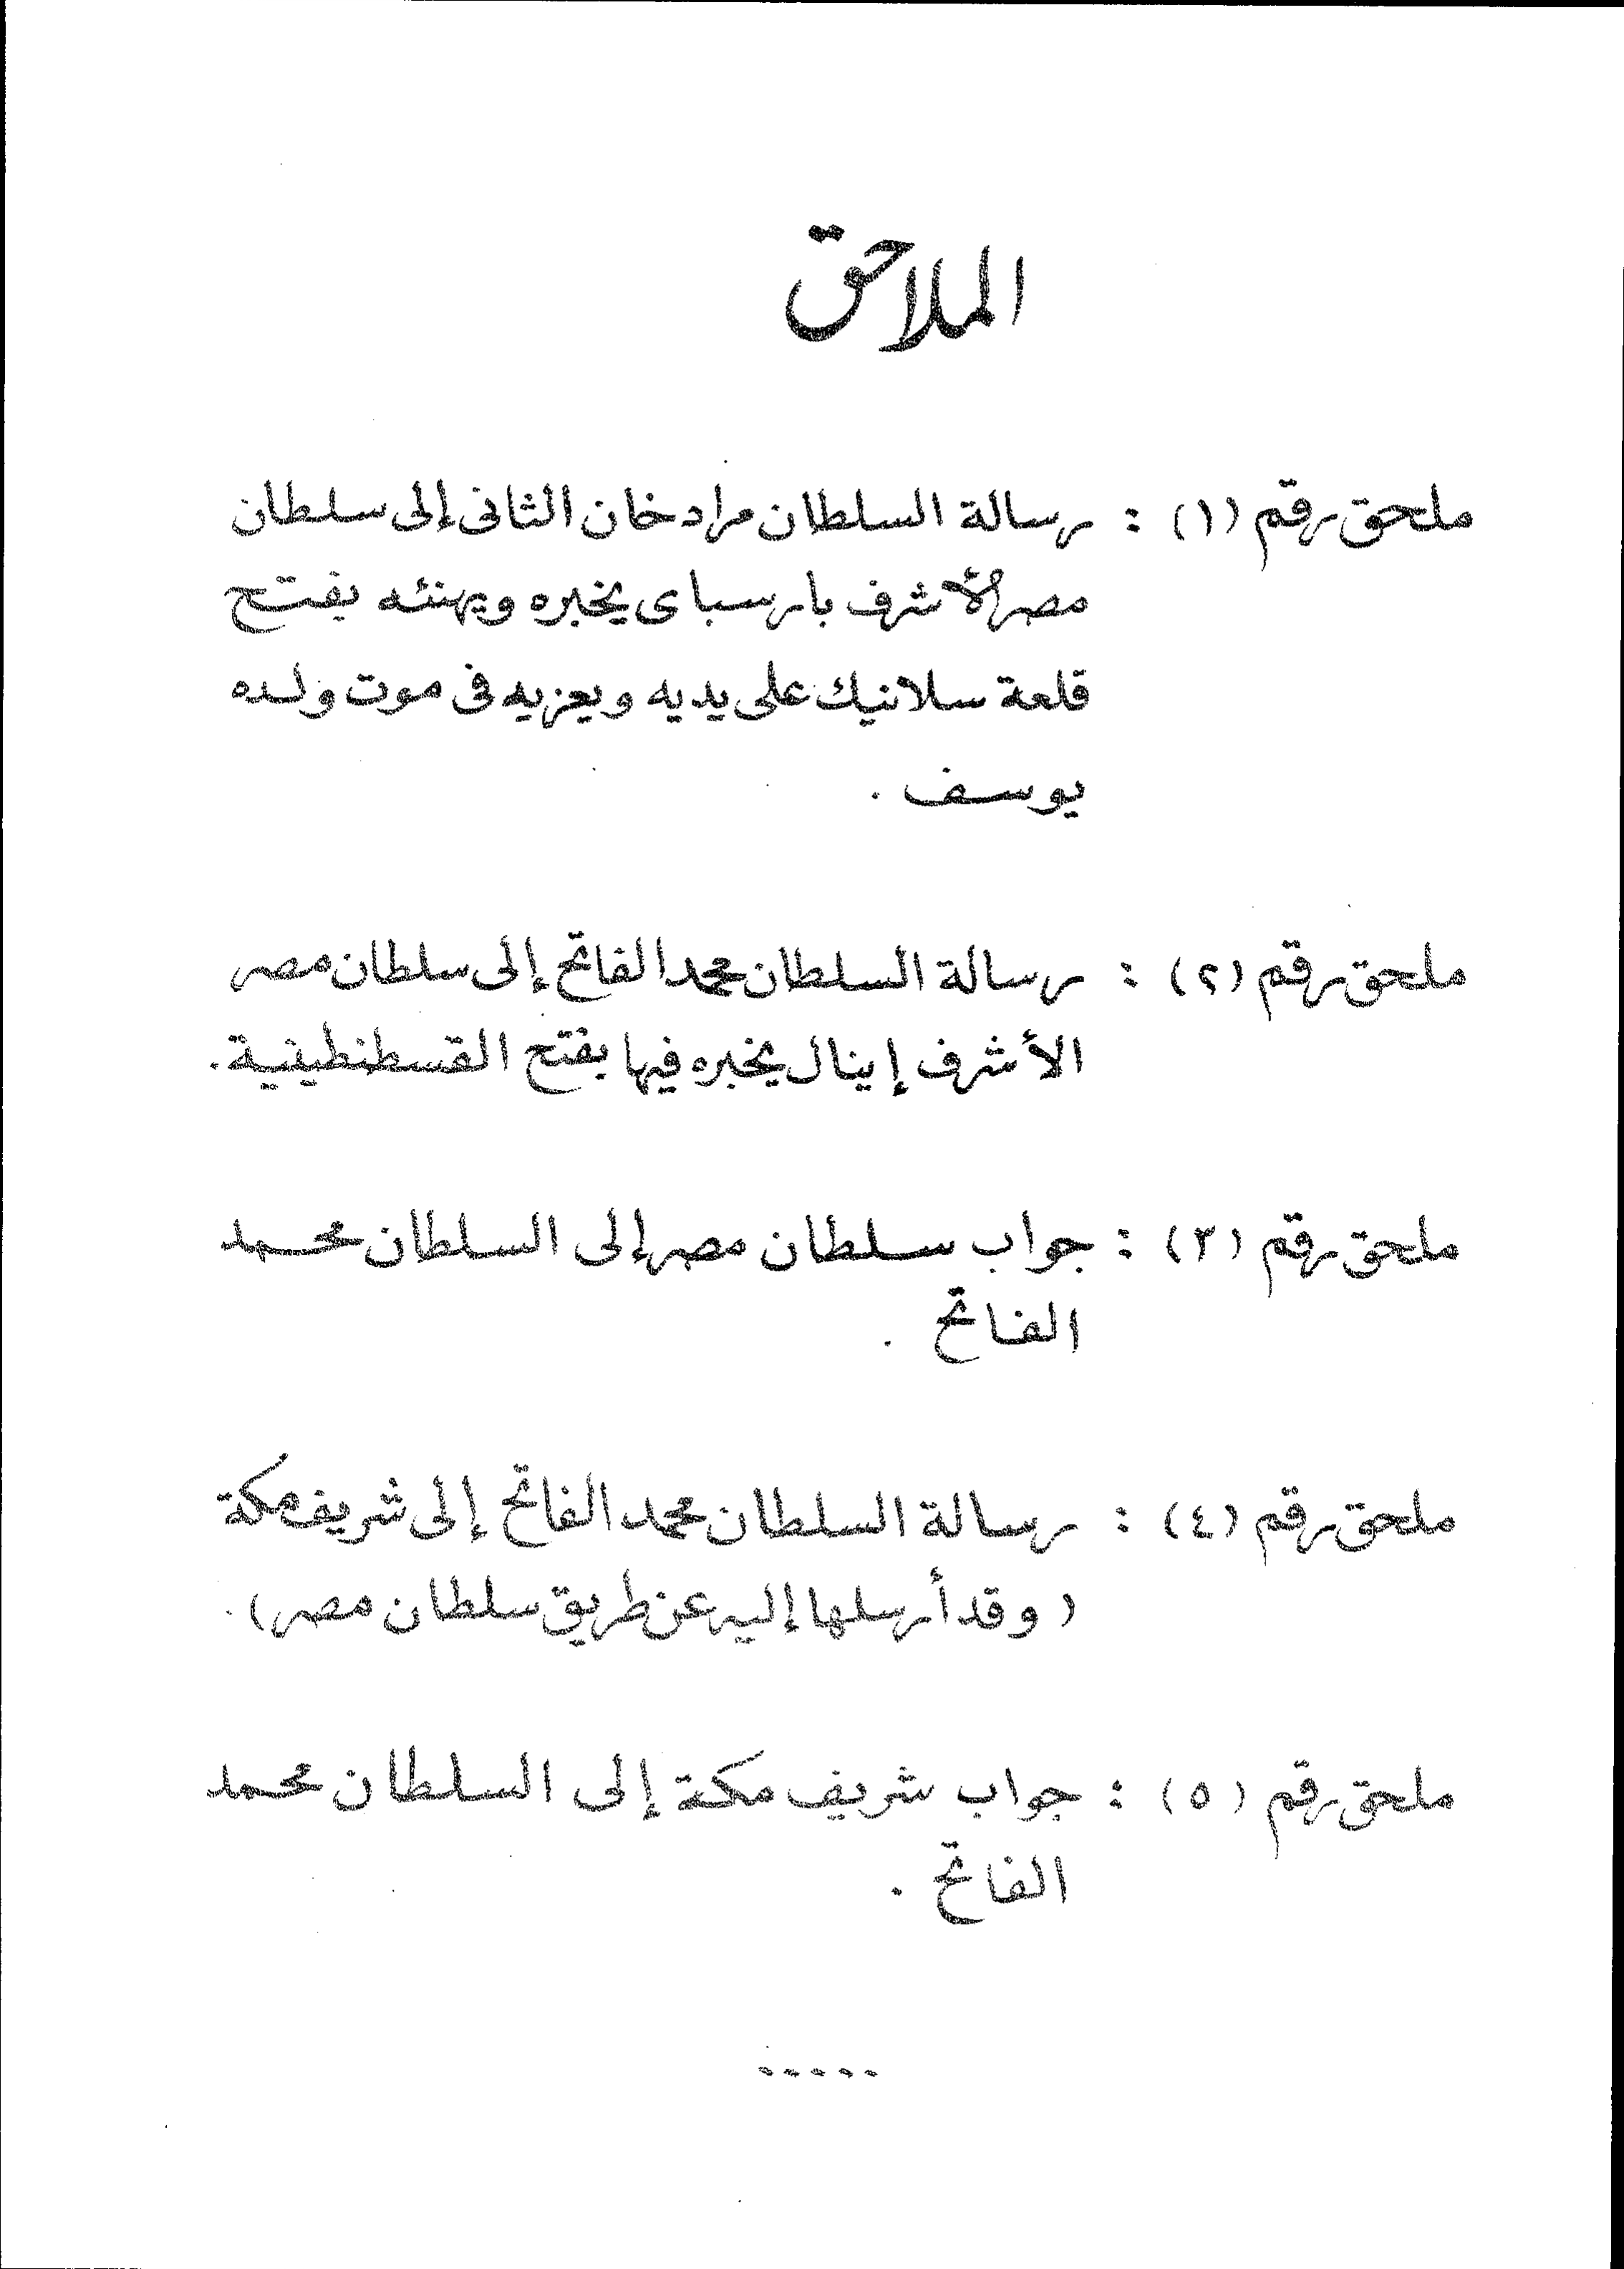 الملاحق
ملحق رقم (١) : رسالة السلطان مراد خان الثانى إلى سلطان
مصر الأشرف بارسباى يخبره ويهنئه بفتح
قلعة سلانيك على يديه ويعزيه فى موت ولده
يوسف .
ملحق رقم (٢) : رسالة السلطان محمد الفاتح إلى سلطان مصر
الأشرف إينال يخبره فيها بفتح القسطنطينية .
ملحق رقم (٣) : جواب سلطان مصر إلى السلطان محمد
الفاتح .
ملحق رقم (٤) : رسالة السلطان محمد الفاتح إلى شريف مكة
( وقد أرسلها إليه عن طريق سلطان مصر ) .
ملحق رقم (٥) : جواب شريف مكة إلى السلطان محمد
الفاتح .
.....